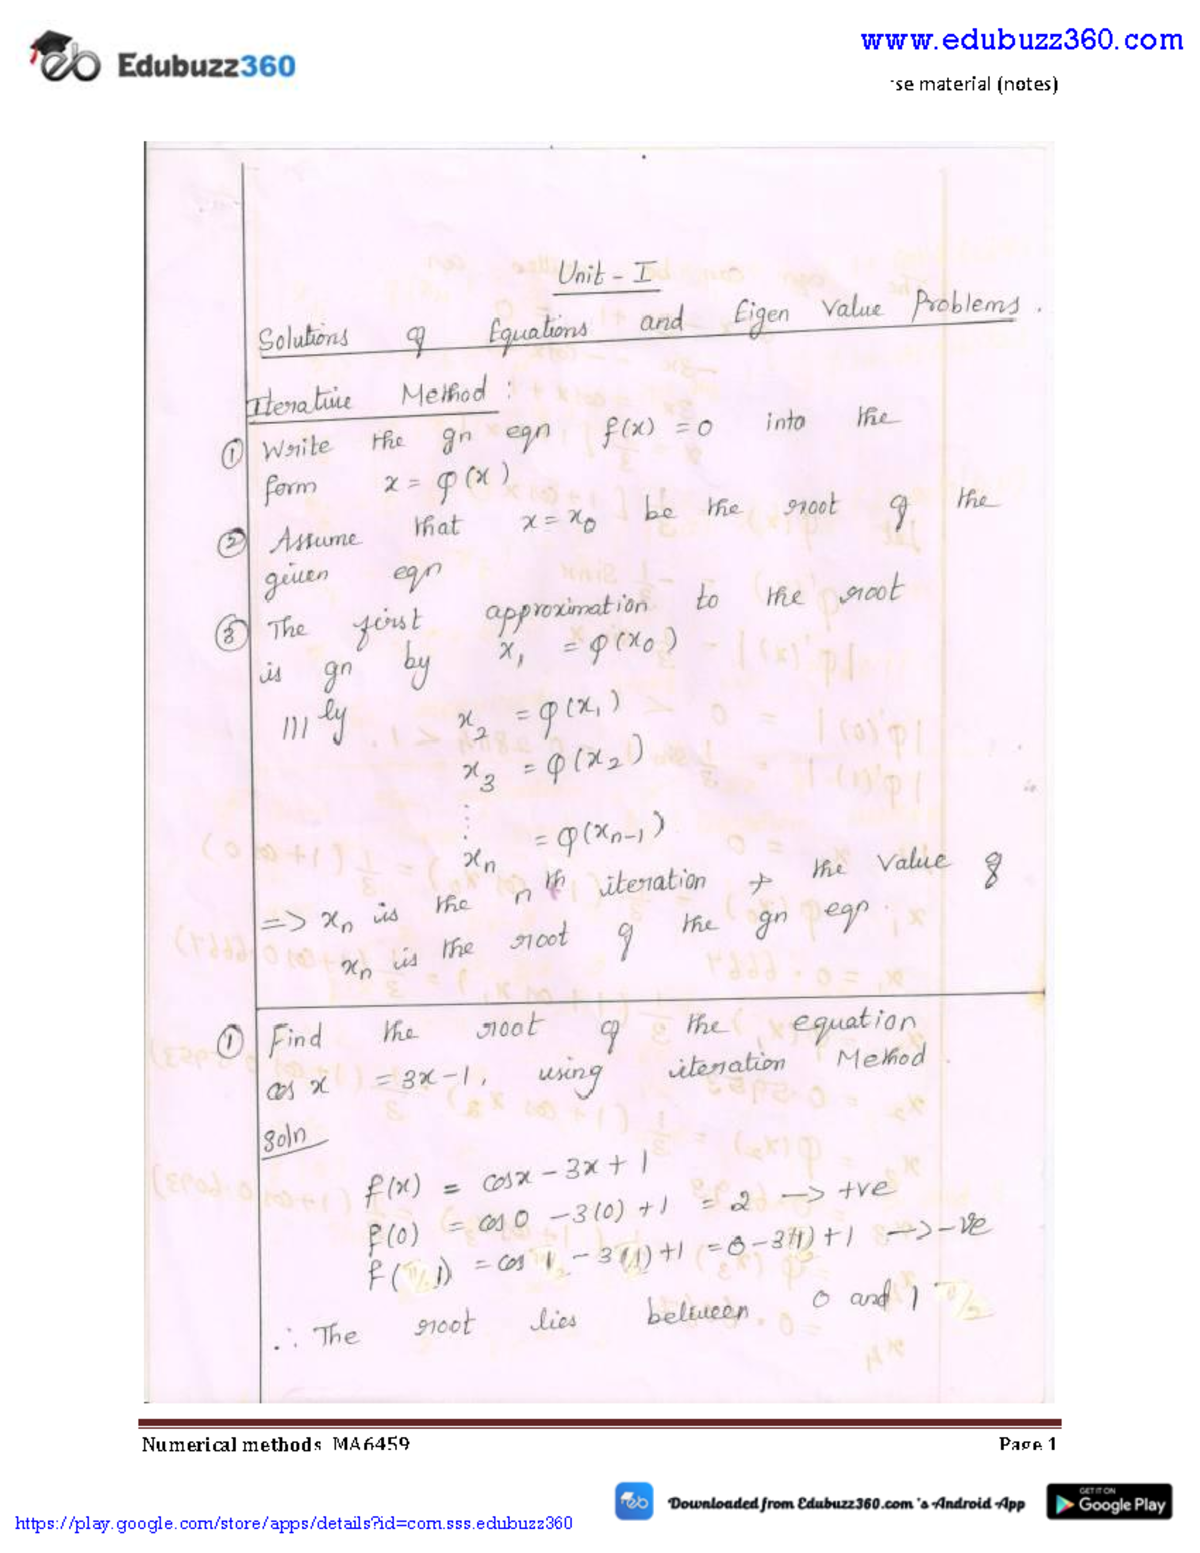 Edubuzz360
www.edubuzz360.com
se material (notes)
Unit - I
Solutions of Equations and Eigen Value Problems.
Iterative Method :
① Write the gn eqn f(x) = 0 into the
form x = φ(x)
② Assume that x = x₀ be the root of the
given eqn
③ The first approximation to the root
is gn by x₁ = φ(x₀)
|||ly x₂ = φ(x₁)
x₃ = φ(x₂)
⋮
xₙ = φ(xₙ₋₁)
=> xₙ is the nth iteration + the value of
xₙ is the root of the gn eqn.
① Find the root of the equation
cos x = 3x - 1, using iteration Method.
Soln
f(x) = cosx - 3x + 1
f(0) = cos 0 - 3(0) + 1 = 2 -> +ve
f(1) = cos 1 - 3(1) + 1 = 0 - 3(1) + 1 -> -ve
∴ The root lies between 0 and 1
Numerical methods MA6459 Page 1
Downloaded from Edubuzz360.com 's Android App
GET IT ON
Google Play
https://play.google.com/store/apps/details?id=com.sss.edubuzz360